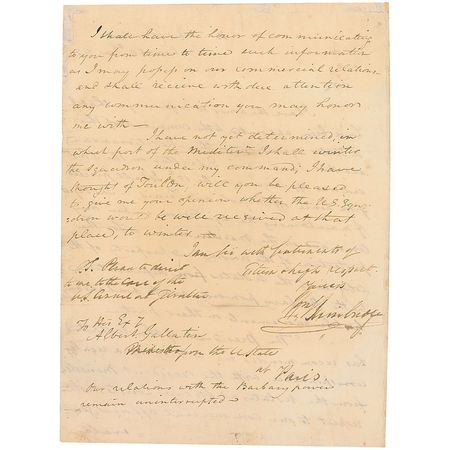 I shall have the honor of communicating
to you from time to time such information
as I may possess on our commercial relations
and shall recieve with due attention
any communication you may honor
me with —
I have not yet determined, in
which port of the Mediterⁿ I shall winter
the Squadron under my command; I have
thought of Toulon, will you be pleased
to give me your opinion whether the U S Squa-
dron would be well received at that
place, to winter —
I am Sir with sentiments of
high respect
Yours
Wm Bainbridge
P.S. Please to direct
to me, to the care of the
U.S. Consul at Gibraltar
To His Exy
Albert Gallatin
Minister from the U State
at Paris.
Our relations with the Barbary powers
remain uninterrupted —